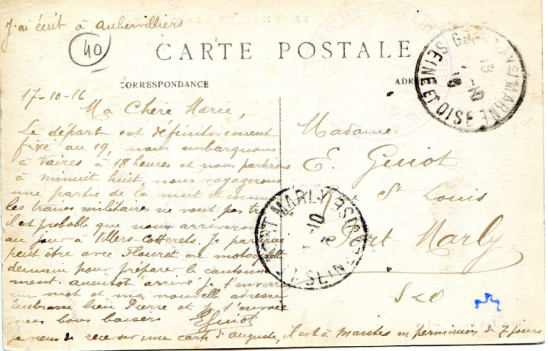 J'ai écrit à Aubervilliers
40
CARTE POSTALE
CORRESPONDANCE
ADRE
SEINE ET OISE
17-10-16
Ma Chère Marie,
Le départ est définitivement
fixé au 19, nous embarquons
à Vaires à 18 heures et nous partirons
à minuit huit, nous voyagerons
une partie de la nuit et comme
les trains militaires ne vont pas
il est probable que nous arriverons
au jour à Villers-Cotterets. Je partirai
peut être avec Fleuret en
demain pour préparer le cantonne
ment. aussitôt arrivé je t'enverrai
un mot et ma nouvelle adresse
bien Pierre et je t'envoie
mes bons baisers EGuiot
je viens de recevoir une carte d'Auguste, il est à Mantes en permission de 7 jours
Madame
E. Guiot
St Louis
Port-Marly
S&O
PORT MARLY